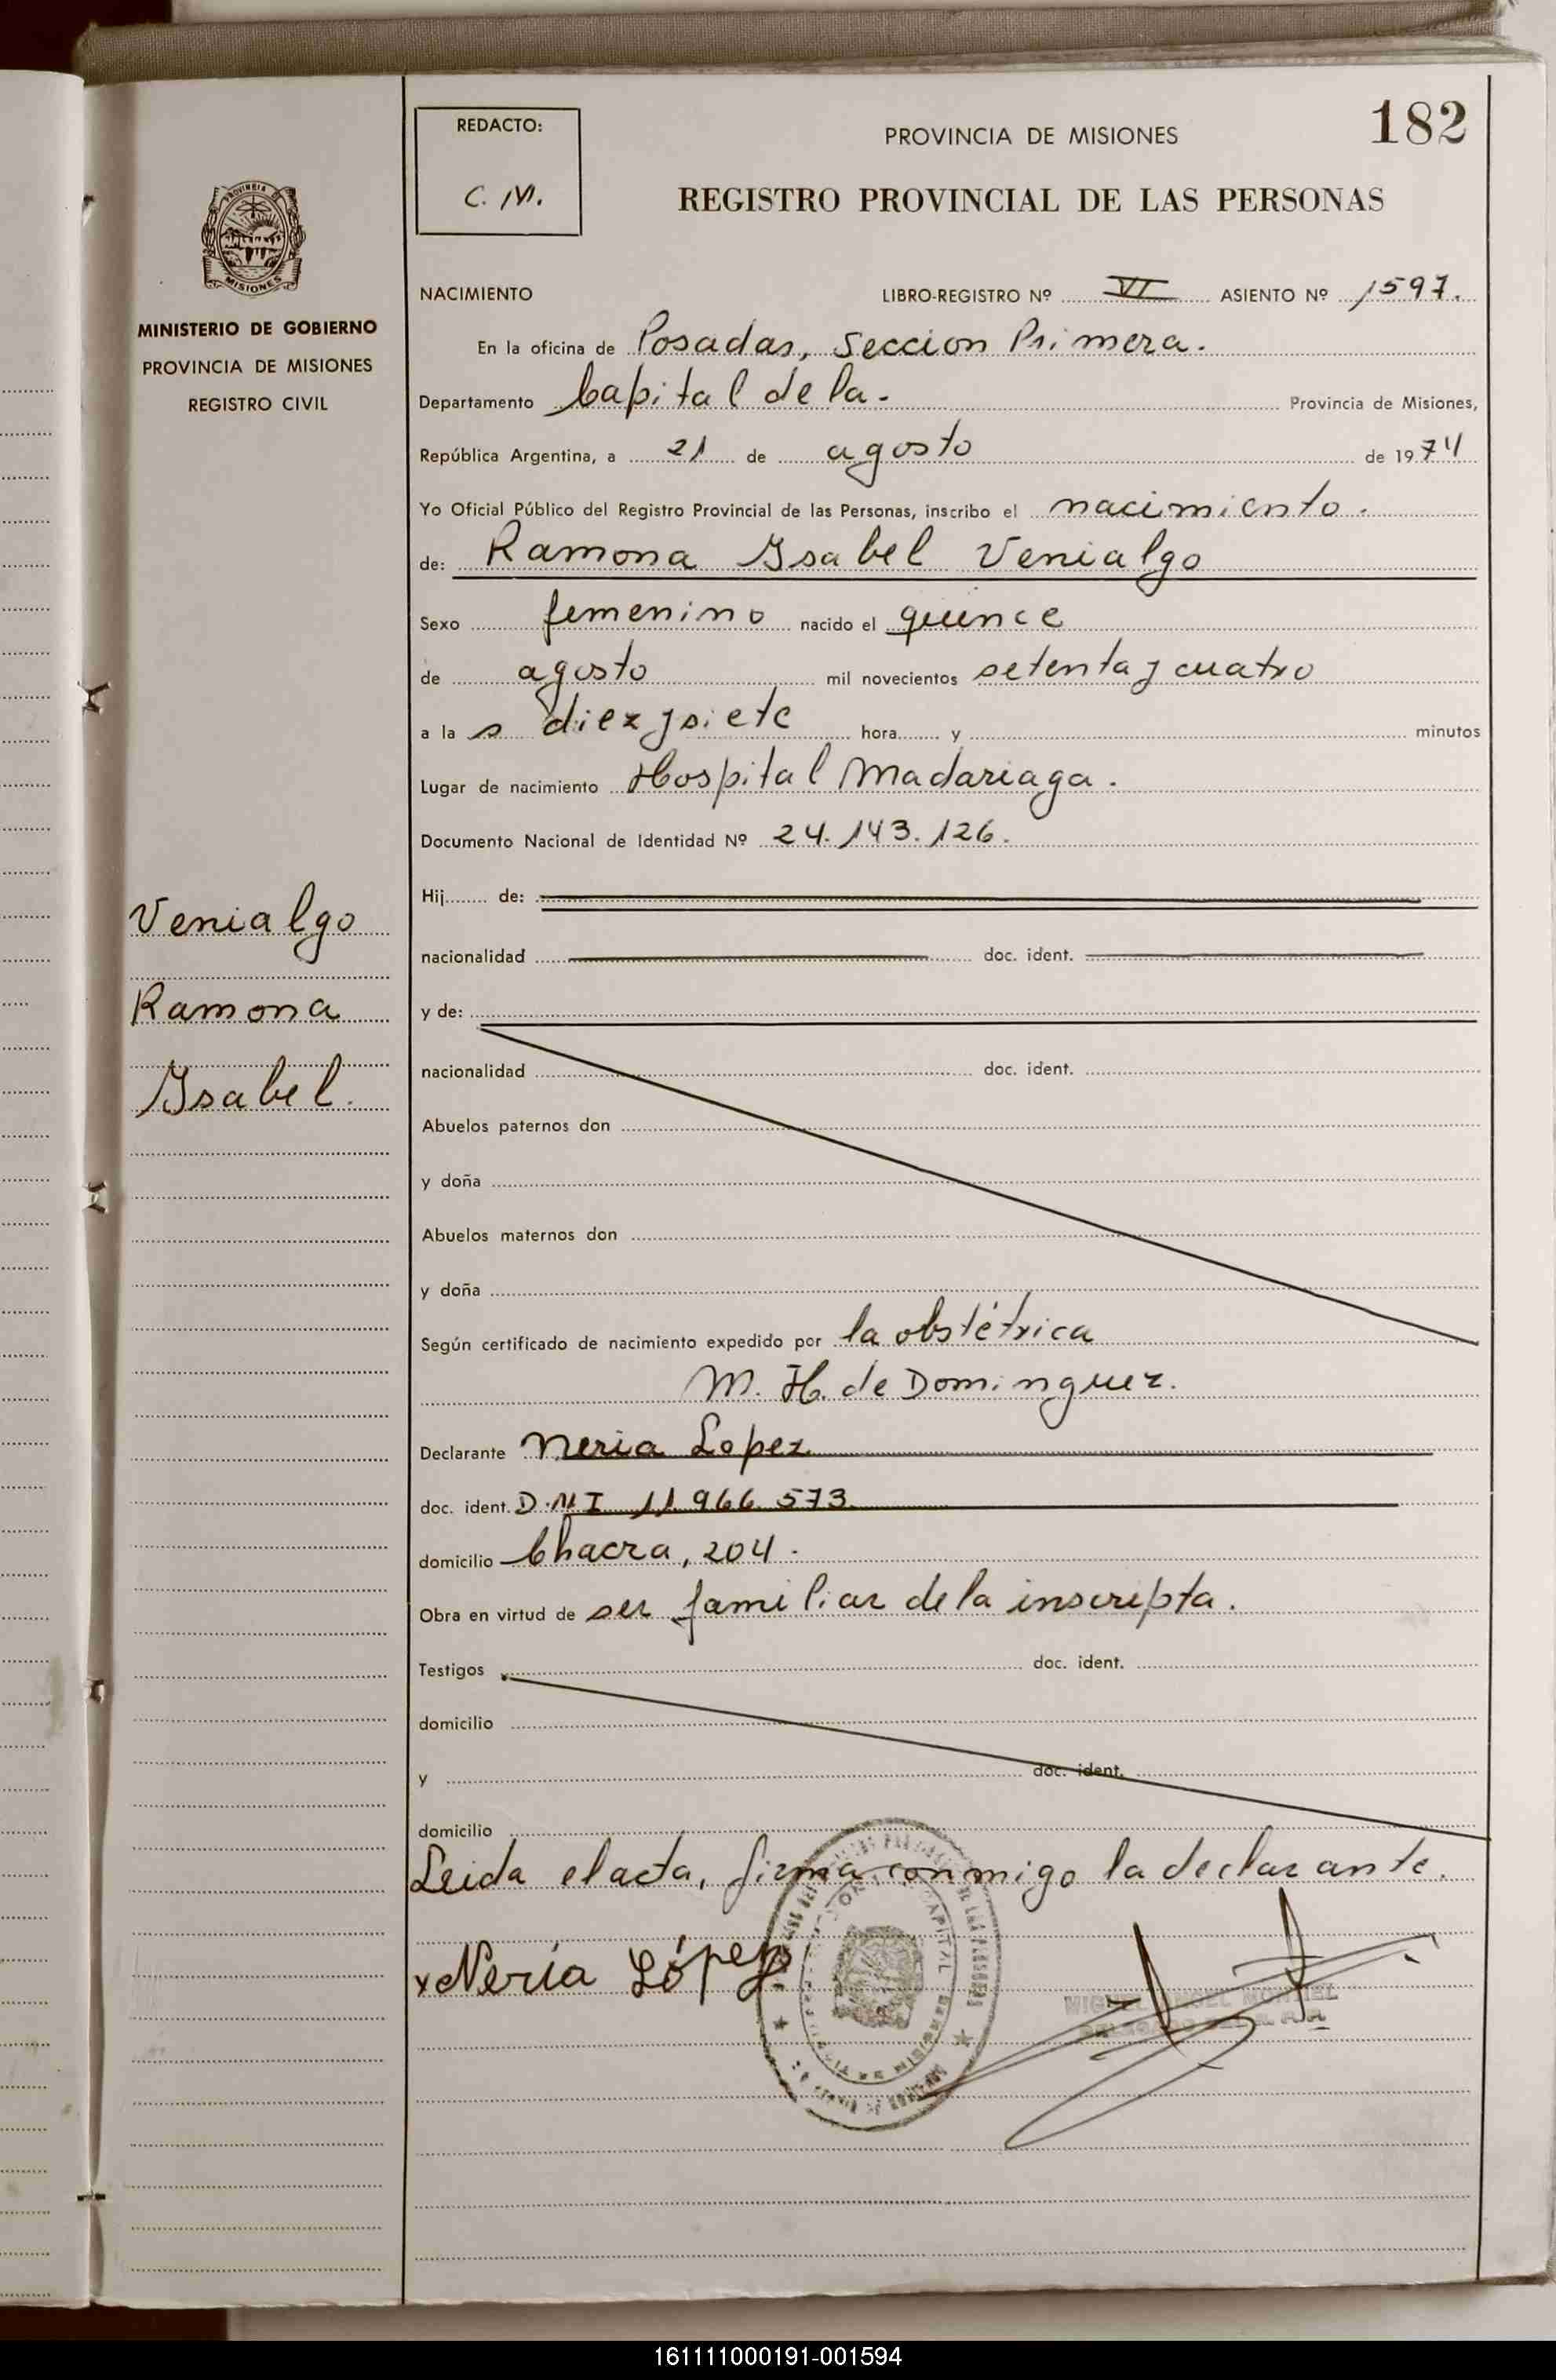 182
REDACTO:
C. M.
PROVINCIA DE MISIONES
REGISTRO PROVINCIAL DE LAS PERSONAS
MISIONES
MINISTERIO DE GOBIERNO
PROVINCIA DE MISIONES
REGISTRO CIVIL
NACIMIENTO LIBRO-REGISTRO Nº VI ASIENTO Nº 1597.
En la oficina de Posadas, Seccion Primera.
Departamento Capital de la. Provincia de Misiones,
República Argentina, a 21 de agosto de 1974
Yo Oficial Público del Registro Provincial de las Personas, inscribo el nacimiento.
de: Ramona Ysabel Venialgo
Sexo femenino nacido el quince
de agosto mil novecientos setenta y cuatro
a la s diez y siete hora y minutos
Lugar de nacimiento Hospital Madariaga.
Documento Nacional de Identidad Nº 24.143.126.
Hij de:
Venialgo
nacionalidad doc. ident.
Ramona
y de:
Ysabel.
nacionalidad doc. ident.
Abuelos paternos don
y doña
Abuelos maternos don
y doña
Según certificado de nacimiento expedido por la obstétrica
M. H. de Dominguez.
Declarante Neria Lopez
doc. ident. D.N.I 11.966.573
domicilio Chacra, 204.
Obra en virtud de ser familiar de la inscripta.
Testigos doc. ident.
domicilio
y doc. ident.
domicilio
Leida el acta, firma conmigo la declarante.
x Nería López
161111000191-001594